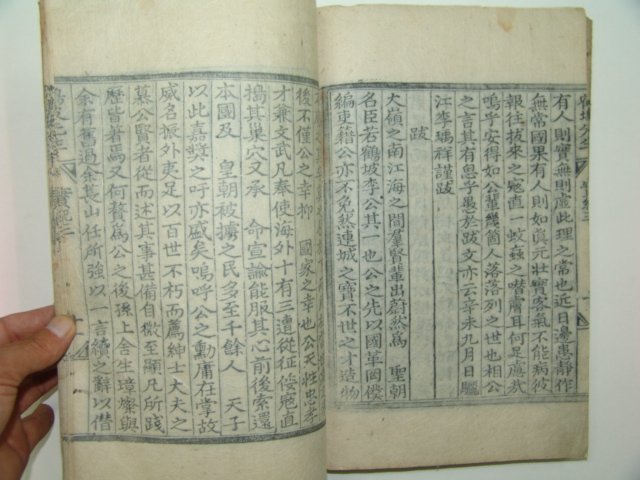 有人則實無則虛此理之常也近日邊患靜作
無常國果有人則如眞元壯實客氣不能病彼
報往拔來之寇直一蚊蝨之噆膚耳何足慮哉
嗚呼安得如公輩幾箇人落落列之世也相公
之言其有思乎愚於跋文亦云辛未九月日驪
江李瑀祥謹跋
跋
大嶺之南江海之間羣賢輩出蔚然爲 聖朝
名臣若鶴坡李公其一也公之先以國革罔僕
編吏籍公亦不免然連城之寶不世之才造物
後不僅公之幸抑 國家之幸也公天性忠孝
才兼文武凡奉使海外十有三遭從征倭寇直
搗其巢穴又承 命宣諭能服其心前後索還
本國及 皇朝被擄之民多至千餘人 天子
以此嘉奬之吁亦盛矣嗚呼公之勳庸在掌故
威名振外夷足以百世不朽而薦紳士大夫之
慕公賢者從而述其事甚備自微至顯凡所踐
歷皆著焉又何贅爲公之後孫上舍生璋燦與
余有舊過余長山任所強以一言續之辭以僭
實紀二